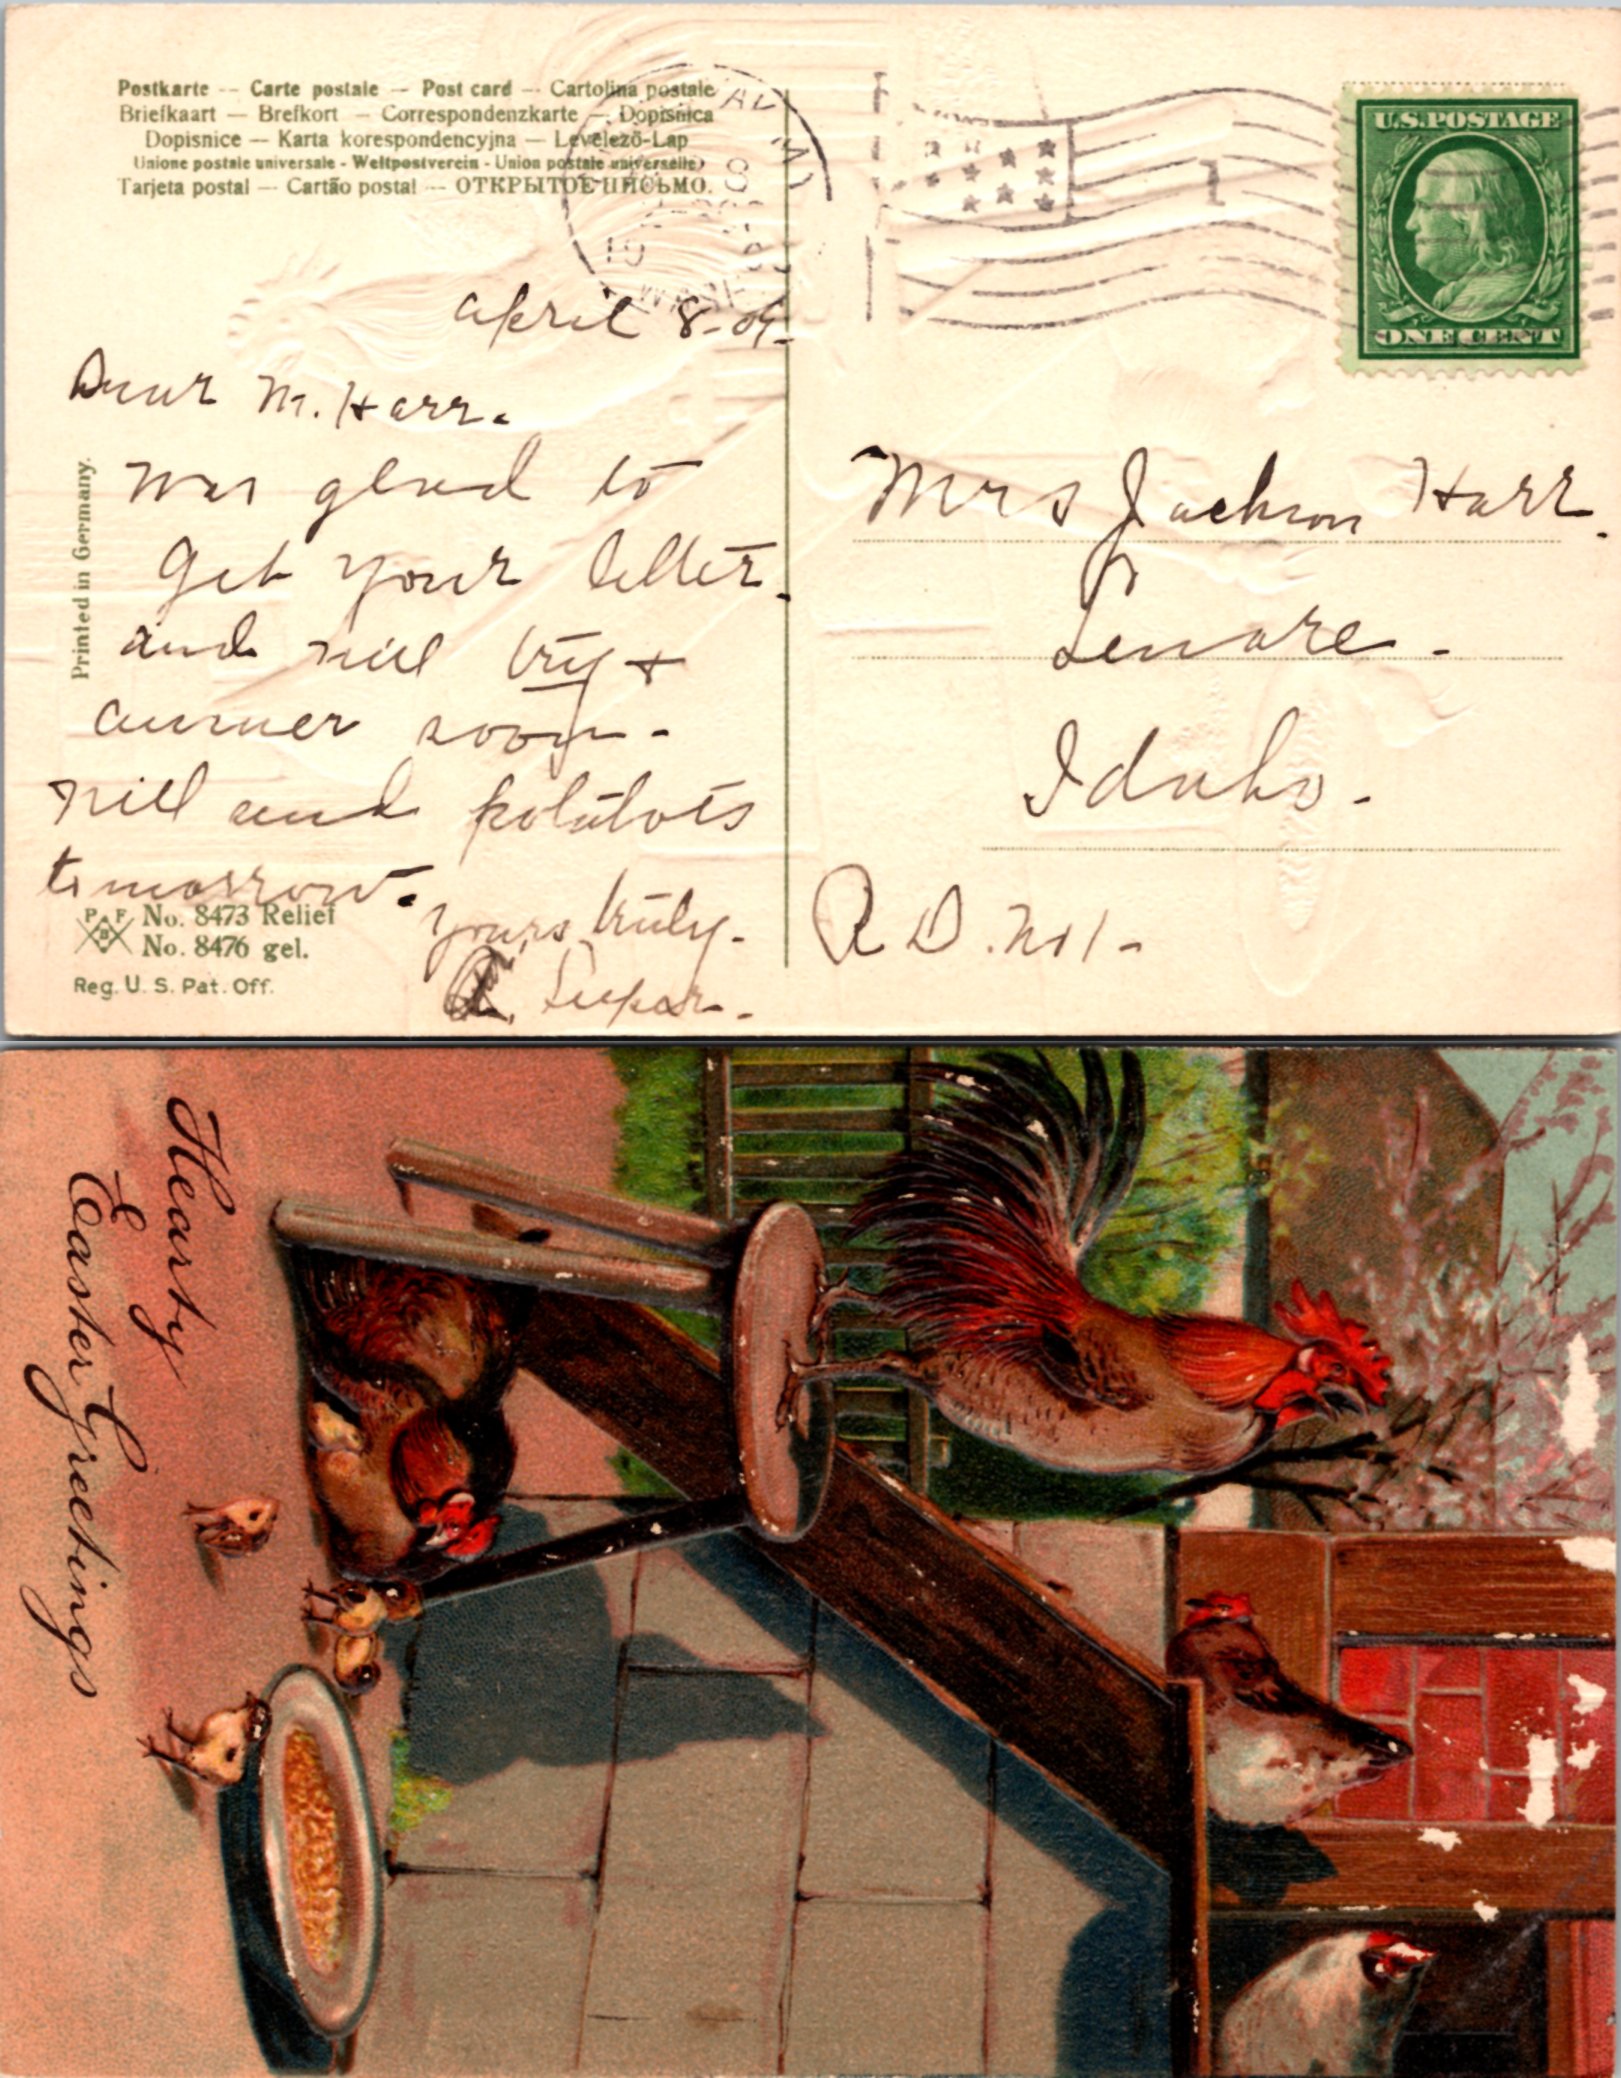 Postkarte -- Carte postale -- Post card -- Cartolina postale
Briefkaart — Brefkort — Correspondenzkarte — Dopisnica
Dopisnice — Karta korespondencyjna — Levelező-Lap
Unione postale universale - Weltpostverein - Union postale universelle
Tarjeta postal — Cartão postal -- ОТКРЫТОЕ ПИСЬМО.
19
WASH
1
U.S.POSTAGE
ONE CENT
April 8-09-
Dear M. Harr.
was glad to
get your letter.
and will try +
answer soon-
will send potatoes
tomorrow.
yours truly-
Printed in Germany.
P F B No. 8473 Relief
No. 8476 gel.
Reg. U. S. Pat. Off.
Mrs Jackson Harr.
Lenore-
Idaho-
R D. No 1-
Hearty
Easter Greetings